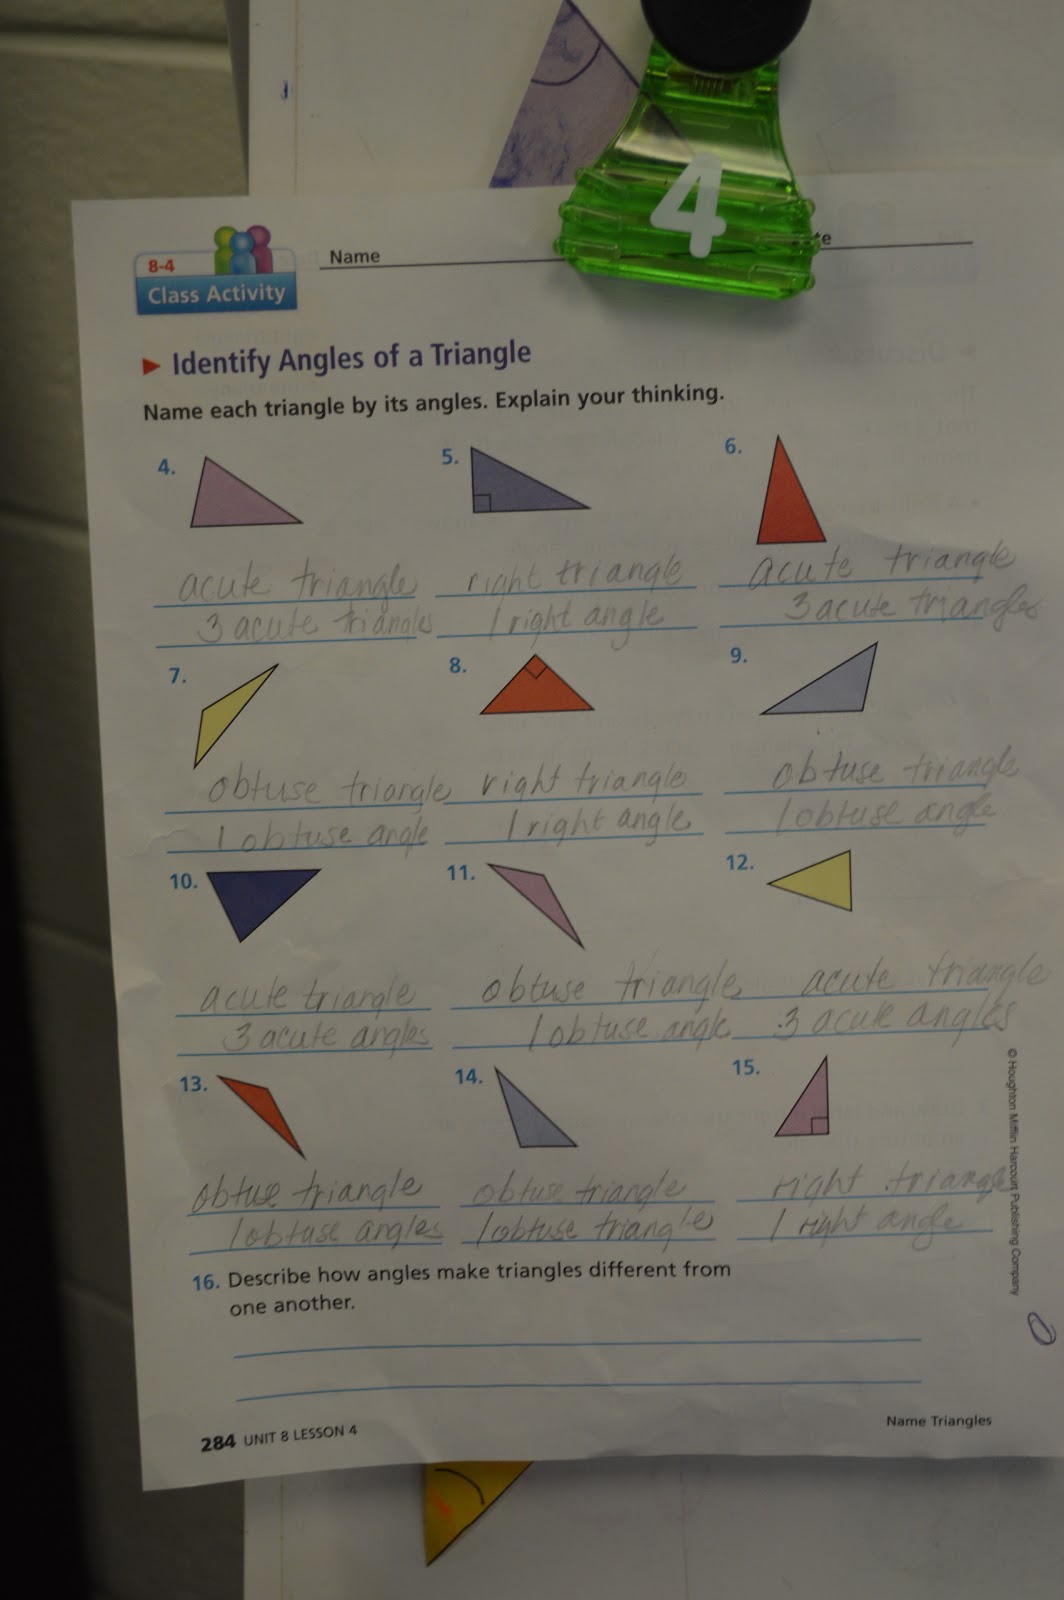 4
8-4
Class Activity
Name
te
Identify Angles of a Triangle
Name each triangle by its angles. Explain your thinking.
4.
5.
6.
acute triangle
3 acute triangles
right triangle
1 right angle
acute triangle
3 acute triangles
7.
8.
9.
obtuse triangle
1 obtuse angle
right triangle
1 right angle
obtuse triangle
1 obtuse angle
10.
11.
12.
acute triangle
3 acute angles
obtuse triangle
1 obtuse angle
acute triangle
3 acute angles
13.
14.
15.
obtuse triangle
1 obtuse angles
obtuse triangle
1 obtuse triangle
right triangle
1 right angle
16. Describe how angles make triangles different from
one another.
© Houghton Mifflin Harcourt Publishing Company
284 UNIT 8 LESSON 4
Name Triangles